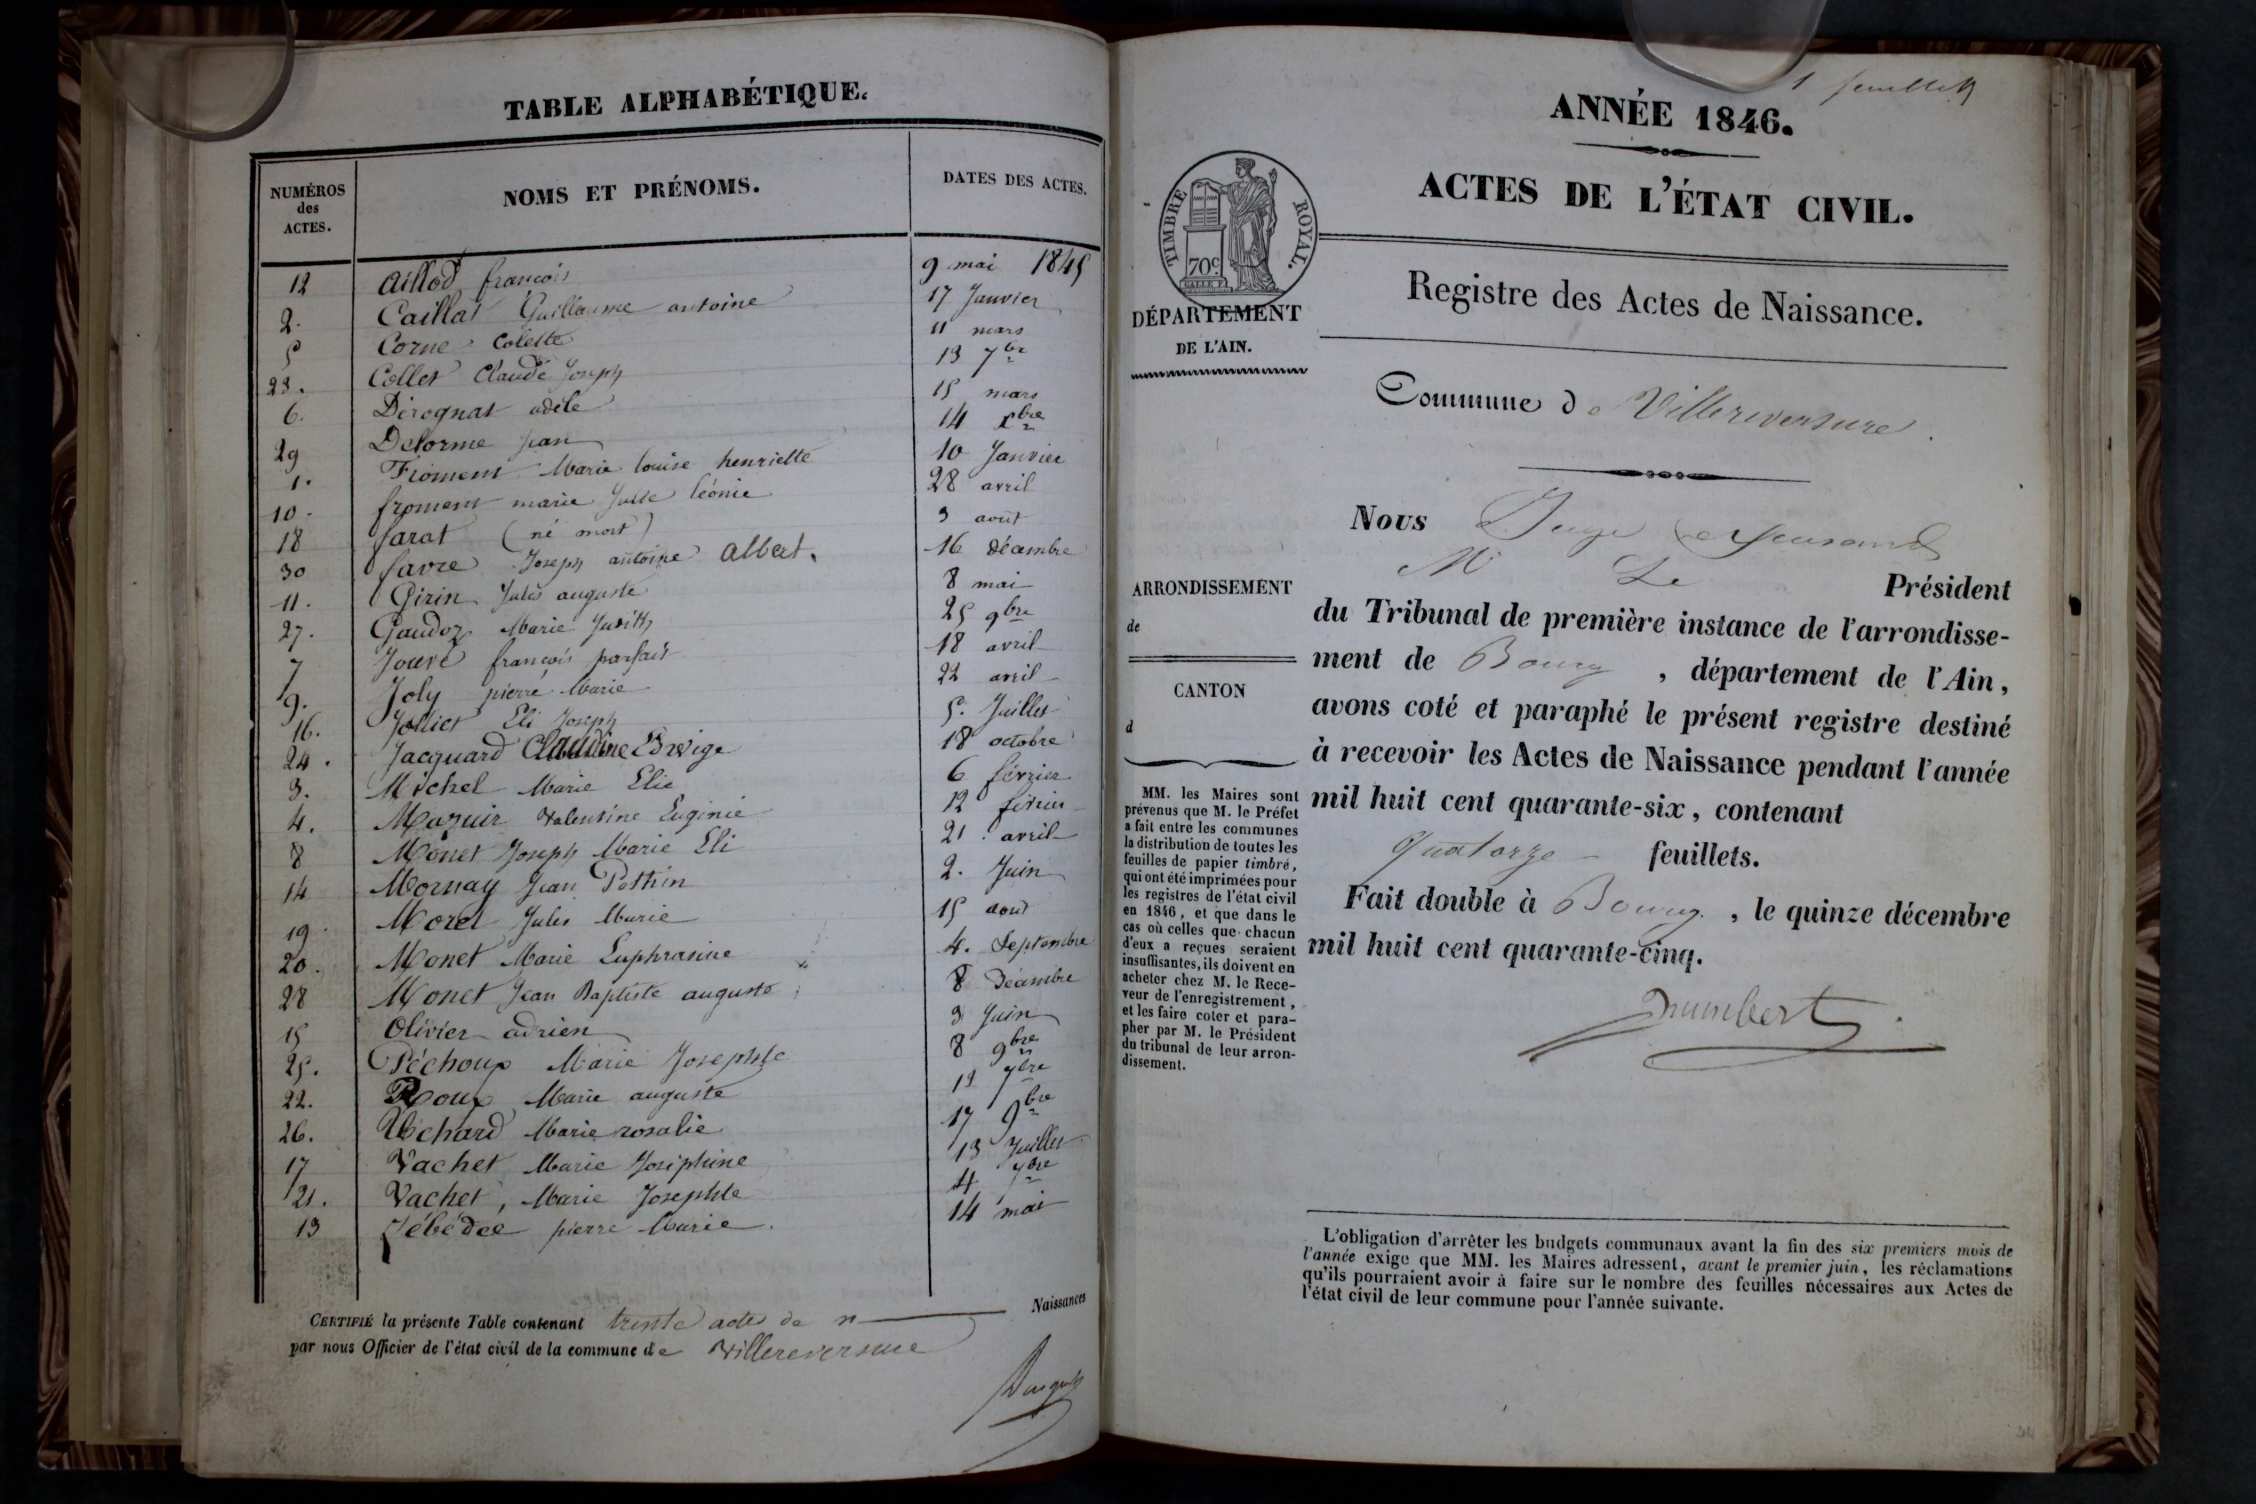 TABLE ALPHABÉTIQUE.
NUMÉROS des ACTES.
NOMS ET PRÉNOMS.
DATES DES ACTES.
12 Aillod françois 9 mai 1845
2. Caillat Guillaume antoine 17 Janvier
5 Corne Colette 11 mars
23. Collet Claude Joseph 13 7bre
6. Dérognat adèle 15 mars
29 Delorme Jean 14 Xbre
1. Froment Marie louise henriette 10 Janvier
10. froment marie Julie léonie 28 avril
18 farat (né mort) 3 août
30 favre Joseph antoine Albert. 16 décembre
11. Girin Jules auguste 8 mai
27. Gaudoz Marie Judith 25 9bre
7 Jouve françois parfait 18 avril
9. Joly pierre Marie 22 avril
16. Jolliet Eli Joseph 5. Juillet
24. Jacquard Claudine Edvige 18 octobre
3. Michel Marie Elie 6 février
4. Mazuir Valentine Eugénie 12 février
8 Monet Joseph Marie Eli 21. avril
14 Mornay Jean Pothin 2. Juin
19 Morel Jules Marie 15 aout
20. Monet Marie Euphrasine 4. Septembre
28 Monet Jean Baptiste auguste 8 Décembre
15 Olivier adrien 3 Juin
25. Péchoux Marie Josephte 8 9bre
22. Roux Marie auguste 13 7bre
26. Uchard Marie rosalie 17 9bre
17 Vachet Marie Joséphine 13 Juillet
21. Vachet, Marie Josephte 4 7bre
13 Zébédee pierre Marie. 14 mai
CERTIFIÉ la présente Table contenant trente actes de n Naissances
par nous Officier de l'état civil de la commune de Villereversure
1 feuillet
ANNÉE 1846.
ACTES DE L'ÉTAT CIVIL.
TIMBRE ROYAL.
70c
DÉPARTEMENT
DE L'AIN.
Registre des Actes de Naissance.
Commune de Villereversure.
Nous Juge
Mr Le Président
ARRONDISSEMENT
de
CANTON
d
du Tribunal de première instance de l'arrondisse-
ment de Bourg, département de l'Ain,
avons coté et paraphé le présent registre destiné
à recevoir les Actes de Naissance pendant l'année
mil huit cent quarante-six, contenant
quatorze feuillets.
Fait double à Bourg, le quinze décembre
mil huit cent quarante-cinq.
MM. les Maires sont
prévenus que M. le Préfet
a fait entre les communes
la distribution de toutes les
feuilles de papier timbré,
qui ont été imprimées pour
les registres de l'état civil
en 1846, et que dans le
cas où celles que chacun
d'eux a reçues seraient
insuffisantes, ils doivent en
acheter chez M. le Rece-
veur de l'enregistrement,
et les faire coter et para-
pher par M. le Président
du tribunal de leur arron-
dissement.
L'obligation d'arrêter les budgets communaux avant la fin des six premiers mois de
l'année exige que MM. les Maires adressent, avant le premier juin, les réclamations
qu'ils pourraient avoir à faire sur le nombre des feuilles nécessaires aux Actes de
l'état civil de leur commune pour l'année suivante.